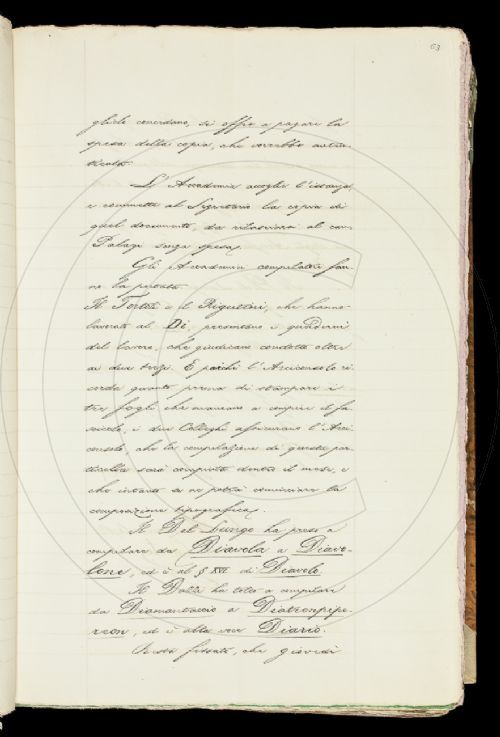 63
gliele concedano, si offre a pagare la
spesa della copia, che vorrebbe auten-
ticata.
L'Accademia accoglie l'istanza
e commette al Segretario la copia di
quel documento, da rilasciarsi al can.
Palagi senza spesa.
Gli Accademici compilatori fan-
no la
Il Tortoli e il Rigutini, che hanno
lavorato al Di, presentano i quaderni
del lavoro, che giudicano condotto oltre
ai due terzi. E poichè l'Arciconsolo ri-
corda quanto prema di stampare i
tre fogli che mancano a compire il fa-
scicolo, i due Colleghi assicurano l'Arci-
consolo, che la compilazione di questa par-
ticella sarà compiuta dentro il mese, e
che intanto se ne potrà cominciare la
composizione tipografica.
Il Del Lungo ha preso a
compilare da Diavola a Diavo-
lone, ed è al § XVI di Diavolo.
Il Dotti ha tolto a compilare
da a
ed è alla voce Diario.
Resta fissato, che giovedì